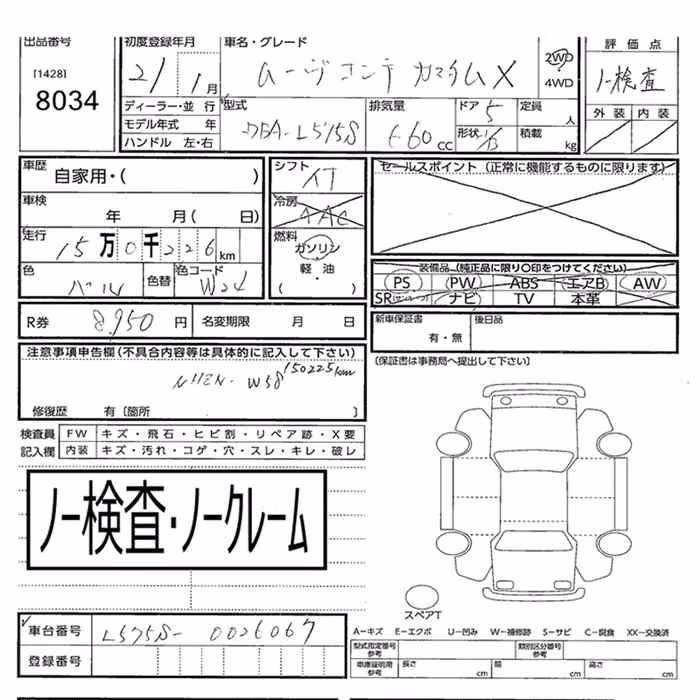 出品番号 初度登録年月 車名・グレード 評価点
[1428] 8034 21年1月 ムーヴコンテ カスタムX 2WD 4WD ノー検査
外装 内装
ディーラー・並行 型式 排気量 ドア 定員
モデル年式 年 DBA-L575S 660cc 5 人
ハンドル 左・右 形状 積載 kg
車歴 シフト セールスポイント (正常に機能するものに限ります)
自家用・( ) AT
車検 冷房
年 月( 日) AAC
走行 燃料
15万0千226km ガソリン
軽油
( )
装備品 (純正品に限り〇印をつけてください)
色 色替 色コード PS PW ABS エアB AW
パール W24 SR(サンルーフ) ナビ TV 本革
R券 8,950円 名変期限 月 日 新車保証書 後日品
有・無
注意事項申告欄(不具合内容等は具体的に記入して下さい) (保証書は事務局へ提出して下さい)
150225km
修復歴 有〔箇所 〕
検査員 FW キズ・飛石・ヒビ割・リペア跡・X要
記入欄 内装 キズ・汚れ・コゲ・穴・スレ・キレ・破レ
ノー検査・ノークレーム
スペアT
車台番号 L575S-0026067
A―キズ E―エクボ U―凹み W―補修跡 S―サビ C―腐食 XX―交換済
登録番号
型式指定番号 参考 類別区分番号 参考
車庫証明用 参考 長さ cm 幅 cm 高さ cm